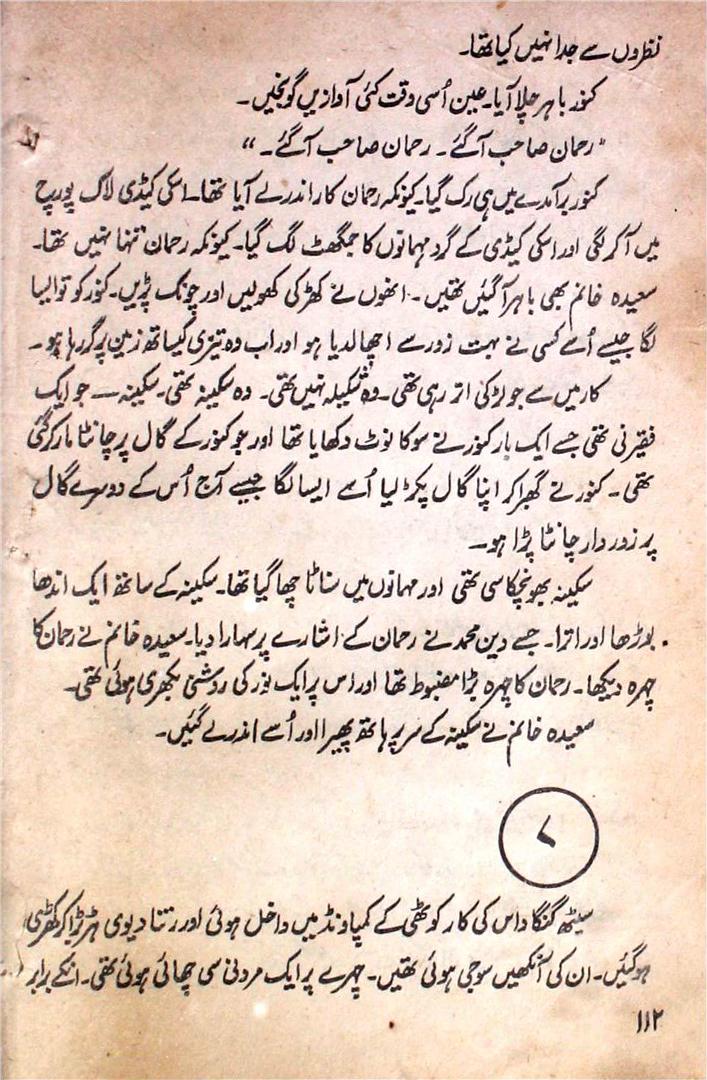 نظروں سے جدا نہیں کیا تھا۔
کنور باہر چلا آیا۔ عین اُسی وقت کئی آوازیں گونجیں۔
"رحمان صاحب آ گئے۔ رحمان صاحب آ گئے۔"
کنور برآمدے میں ہی رک گیا۔ کیونکہ رحمان کار اندر لے آیا تھا۔ اسکی کیڈی لاک پورچ
میں آ کر لگی اور اسکی کیڈی کے گرد مہمانوں کا جمگھٹ لگ گیا۔ کیونکہ رحمان تنہا نہیں تھا۔
سعیدہ خانم بھی باہر آ گئیں تھیں۔ انھوں نے کھڑکی کھولیں اور چونک پڑیں۔ کنور کو تو ایسا
لگا جیسے اُسے کسی نے بہت زور سے اچھالدیا ہو اور اب وہ تیزی کیساتھ زمین پر گر رہا ہو۔
کار میں سے جو لڑکی اتر رہی تھی۔ وہ شکیلہ نہیں تھی۔ وہ سکینہ تھی۔ سکینہ — جو ایک
فقیرنی تھی جسے ایک بار کنور نے سو کا نوٹ دکھایا تھا اور جو کنور کے گال پر چانٹا مار کر گئی
تھی۔ کنور نے گھبرا کر اپنا گال پکڑ لیا اُسے ایسا لگا جیسے آج اُس کے دوسرے گال
پر زور دار چانٹا پڑا ہو۔
سکینہ بھونچکا سی تھی اور مہمانوں میں سناٹا چھا گیا تھا۔ سکینہ کے ساتھ ایک اندھا
بوڑھا اور اترا۔ جسے دین محمد نے رحمان کے اشارے پر سہارا دیا۔ سعیدہ خانم نے رحمان کا
چہرہ دیکھا۔ رحمان کا چہرہ بڑا مضبوط تھا اور اس پر ایک نور کی روشنی بکھری ہوئی تھی۔
سعیدہ خانم نے سکینہ کے سر پر ہاتھ پھیرا اور اُسے اندر لے گئیں۔
۷
سیٹھ گنگا داس کی کار کوٹھی کے کمپاونڈ میں داخل ہوئی اور رتنا دیوی ہڑبڑا کر کھڑی
ہو گئیں۔ ان کی آنکھیں سوجی ہوئی تھیں۔ چہرے پر ایک مردنی سی چھائی ہوئی تھی۔ انکے برابر
۱۱۲